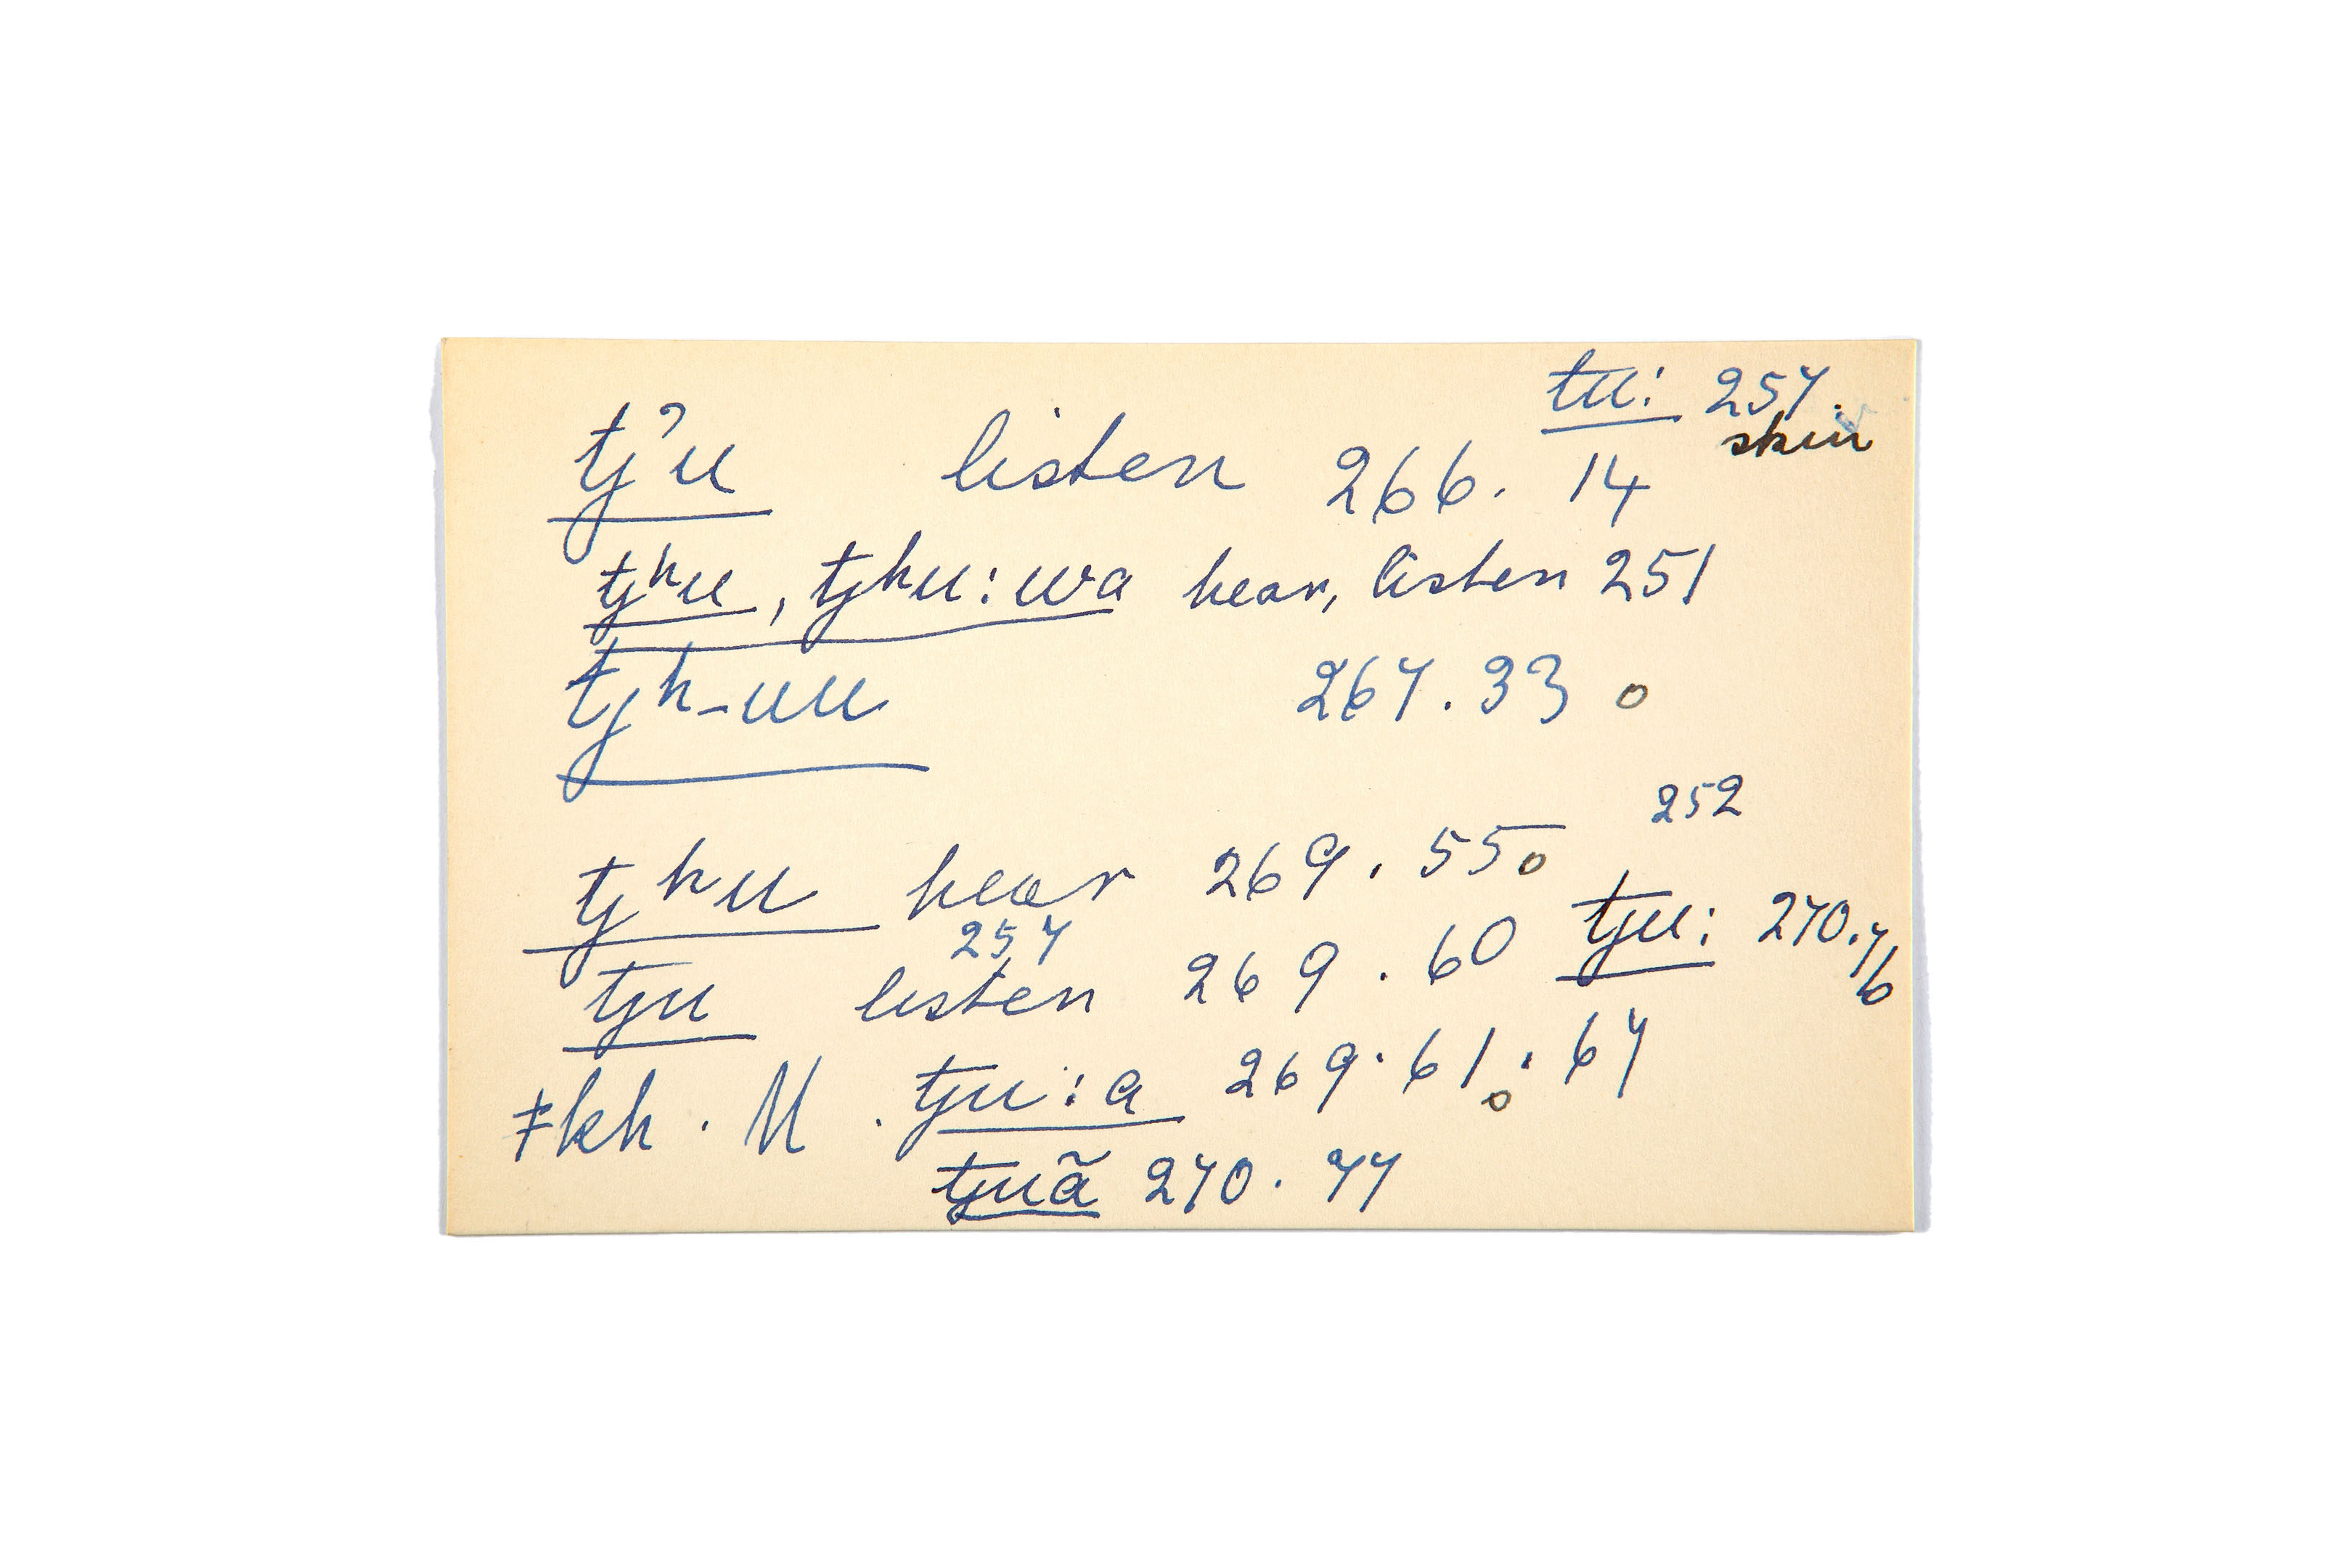 tu: 257.
skin
tj'u listen 266. 14
tjhu, tjhu:wa hear, listen 251
tjh-uu 267.33 o
252
tjhu hear 269.55 o
257
tju listen 269.60 tju: 270.76
ǂkh. M. tju:a 269.61 o . 67
tjuã 270.77